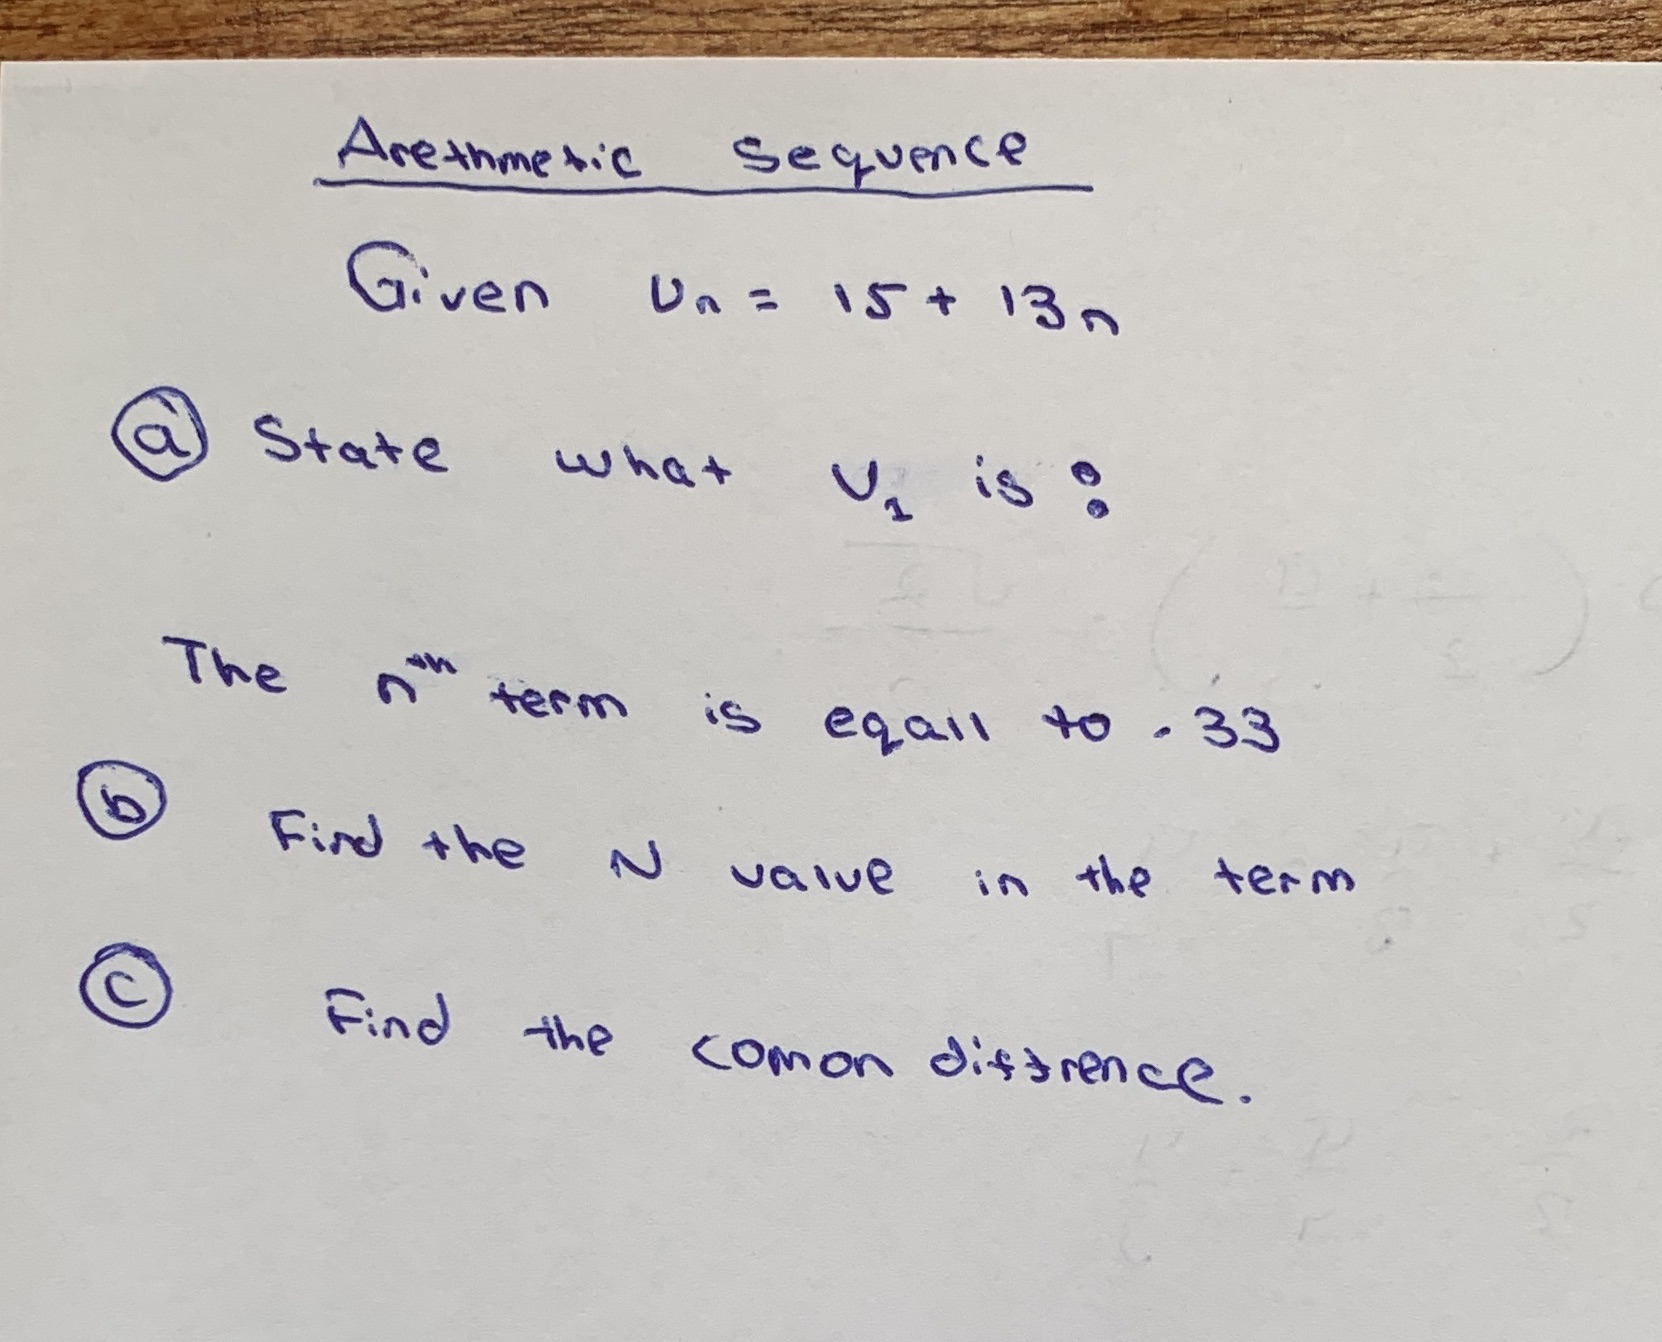 Arethmetic sequence
Given Un = 15 + 13n
a State what U1 is :
The nth term is eqall to - 33
b Find the N value in the term
c Find the comon diffrence.